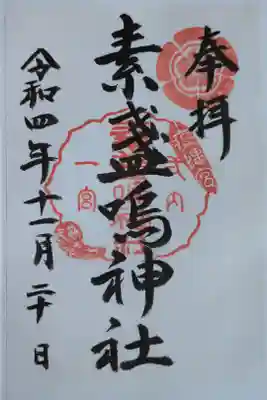 奉拝
素盞嗚神社
令和四年十一月二十日